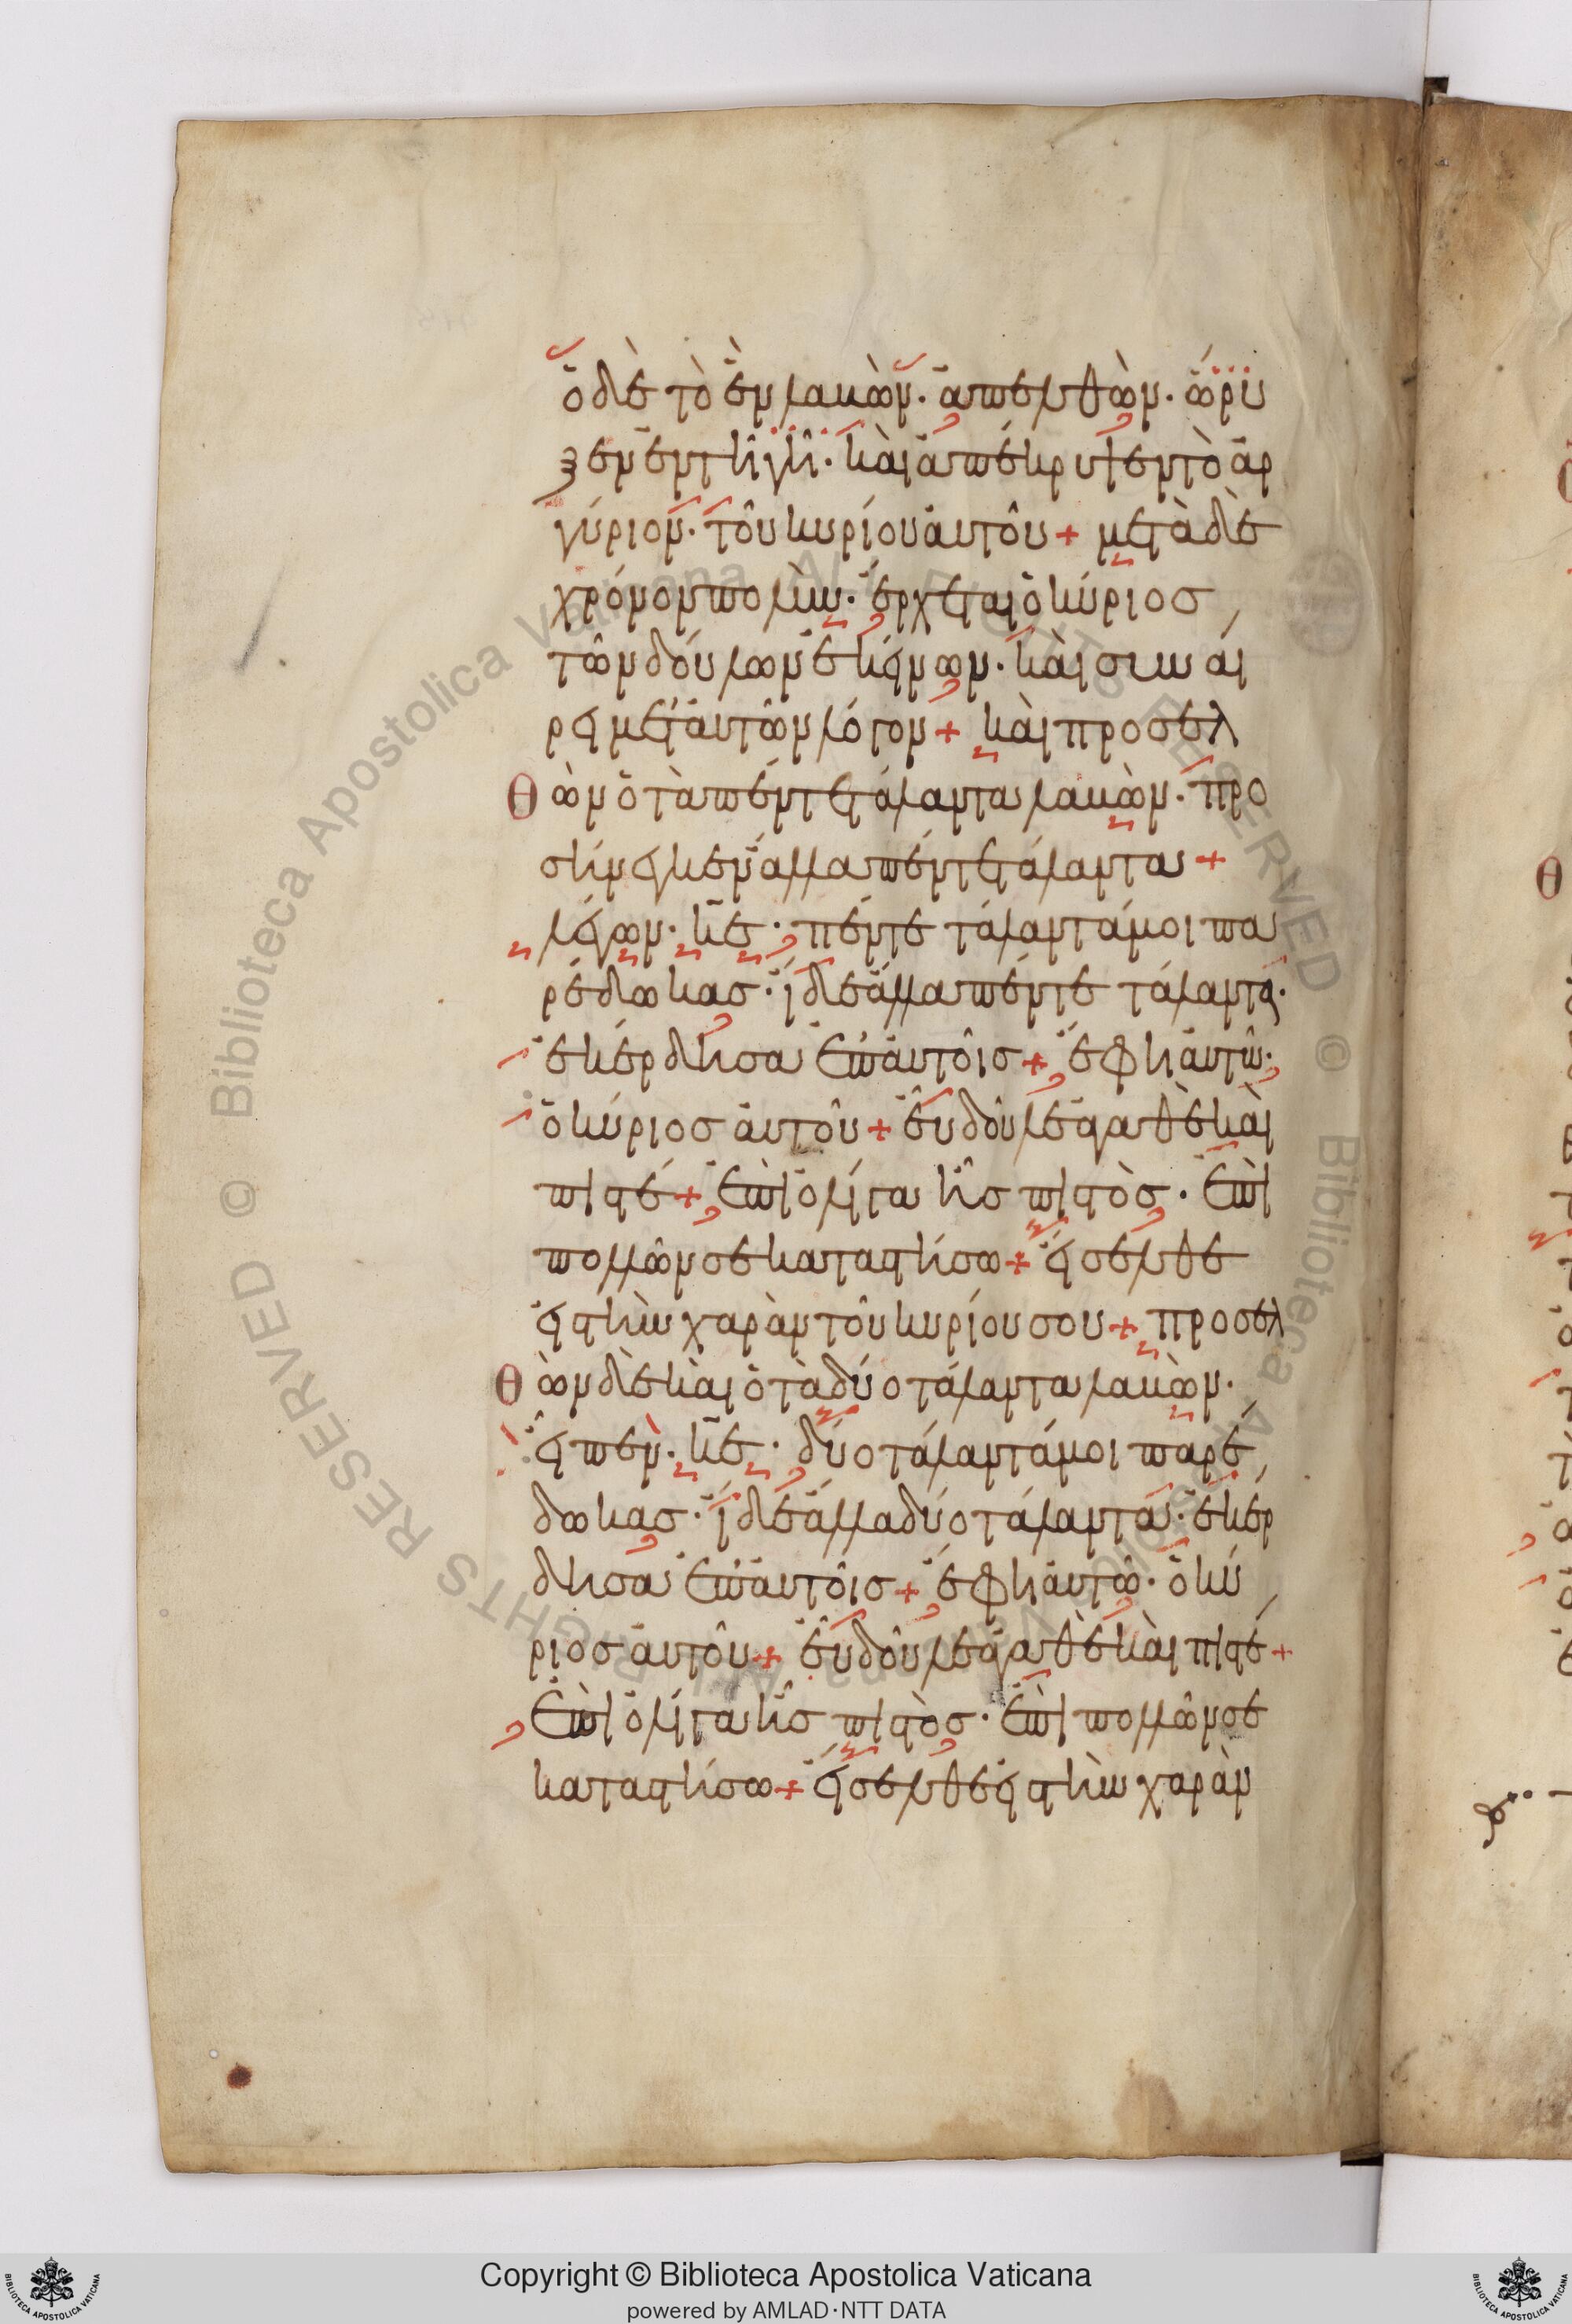 ὁ δὲ τὸ ἓν λαβὼν· ἀπελθὼν· ὤρυ
ξεν ἐν τῆ γῆ· καὶ ἀπέκρυψεν τὸ ἀρ
γύριον· τοῦ κυρίου αὐτοῦ + μετὰ δὲ
χρόνον πολὺν· ἔρχεται ὁ κύριοσ
τῶν δούλων ἐκείνων· καὶ συναί
ρει μετ' αὐτῶν λόγον + καὶ προσελ
θὼν ὁ τὰ πέντε τάλαντα λαβὼν· προ
σήνεγκεν ἄλλα πέντε τάλαντα +
λέγων· κ̅ε̅· πέντε τάλαντά μοι πα
ρέδωκασ· ἴδε ἄλλα πέντε τάλαντα·
ἐκέρδησα ἐπ' αὐτοῖσ + ἔφη αὐτῶ·
ὁ κύριοσ αὐτοῦ + εὖ δοῦλε ἀγαθὲ καὶ
πιστέ + ἐπὶ ὀλίγα ἦσ πιστὸσ· ἐπὶ
πολλῶν σε καταστήσω + εἴσελθε
εἰσ τὴν χαρὰν τοῦ κυρίου σου + προσελ
θὼν δὲ καὶ ὁ τὰ δύο τάλαντα λαβὼν·
εἶπεν· κ̅ε̅· δύο τάλαντά μοι παρέ
δωκασ· ἴδε ἄλλα δύο τάλαντα· ἐκέρ
δησα ἐπ' αὐτοῖσ + ἔφη αὐτῶ· ὁ κύ
ριοσ αὐτοῦ + εὖ δοῦλε ἀγαθὲ καὶ πιστέ +
ἐπὶ ὀλίγα ἦσ πιστὸσ· ἐπὶ πολλῶν σε
καταστήσω + εἴσελθε εἰσ τὴν χαρὰν
Copyright © Biblioteca Apostolica Vaticana
powered by AMLAD·NTT DATA